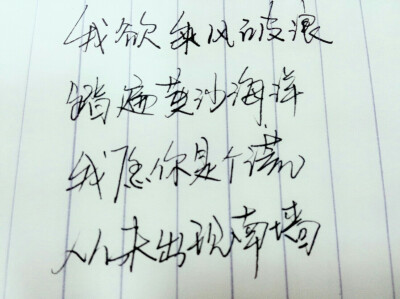 我欲乘风破浪
踏遍黄沙海洋
我愿你是个谎
从未出现南墙